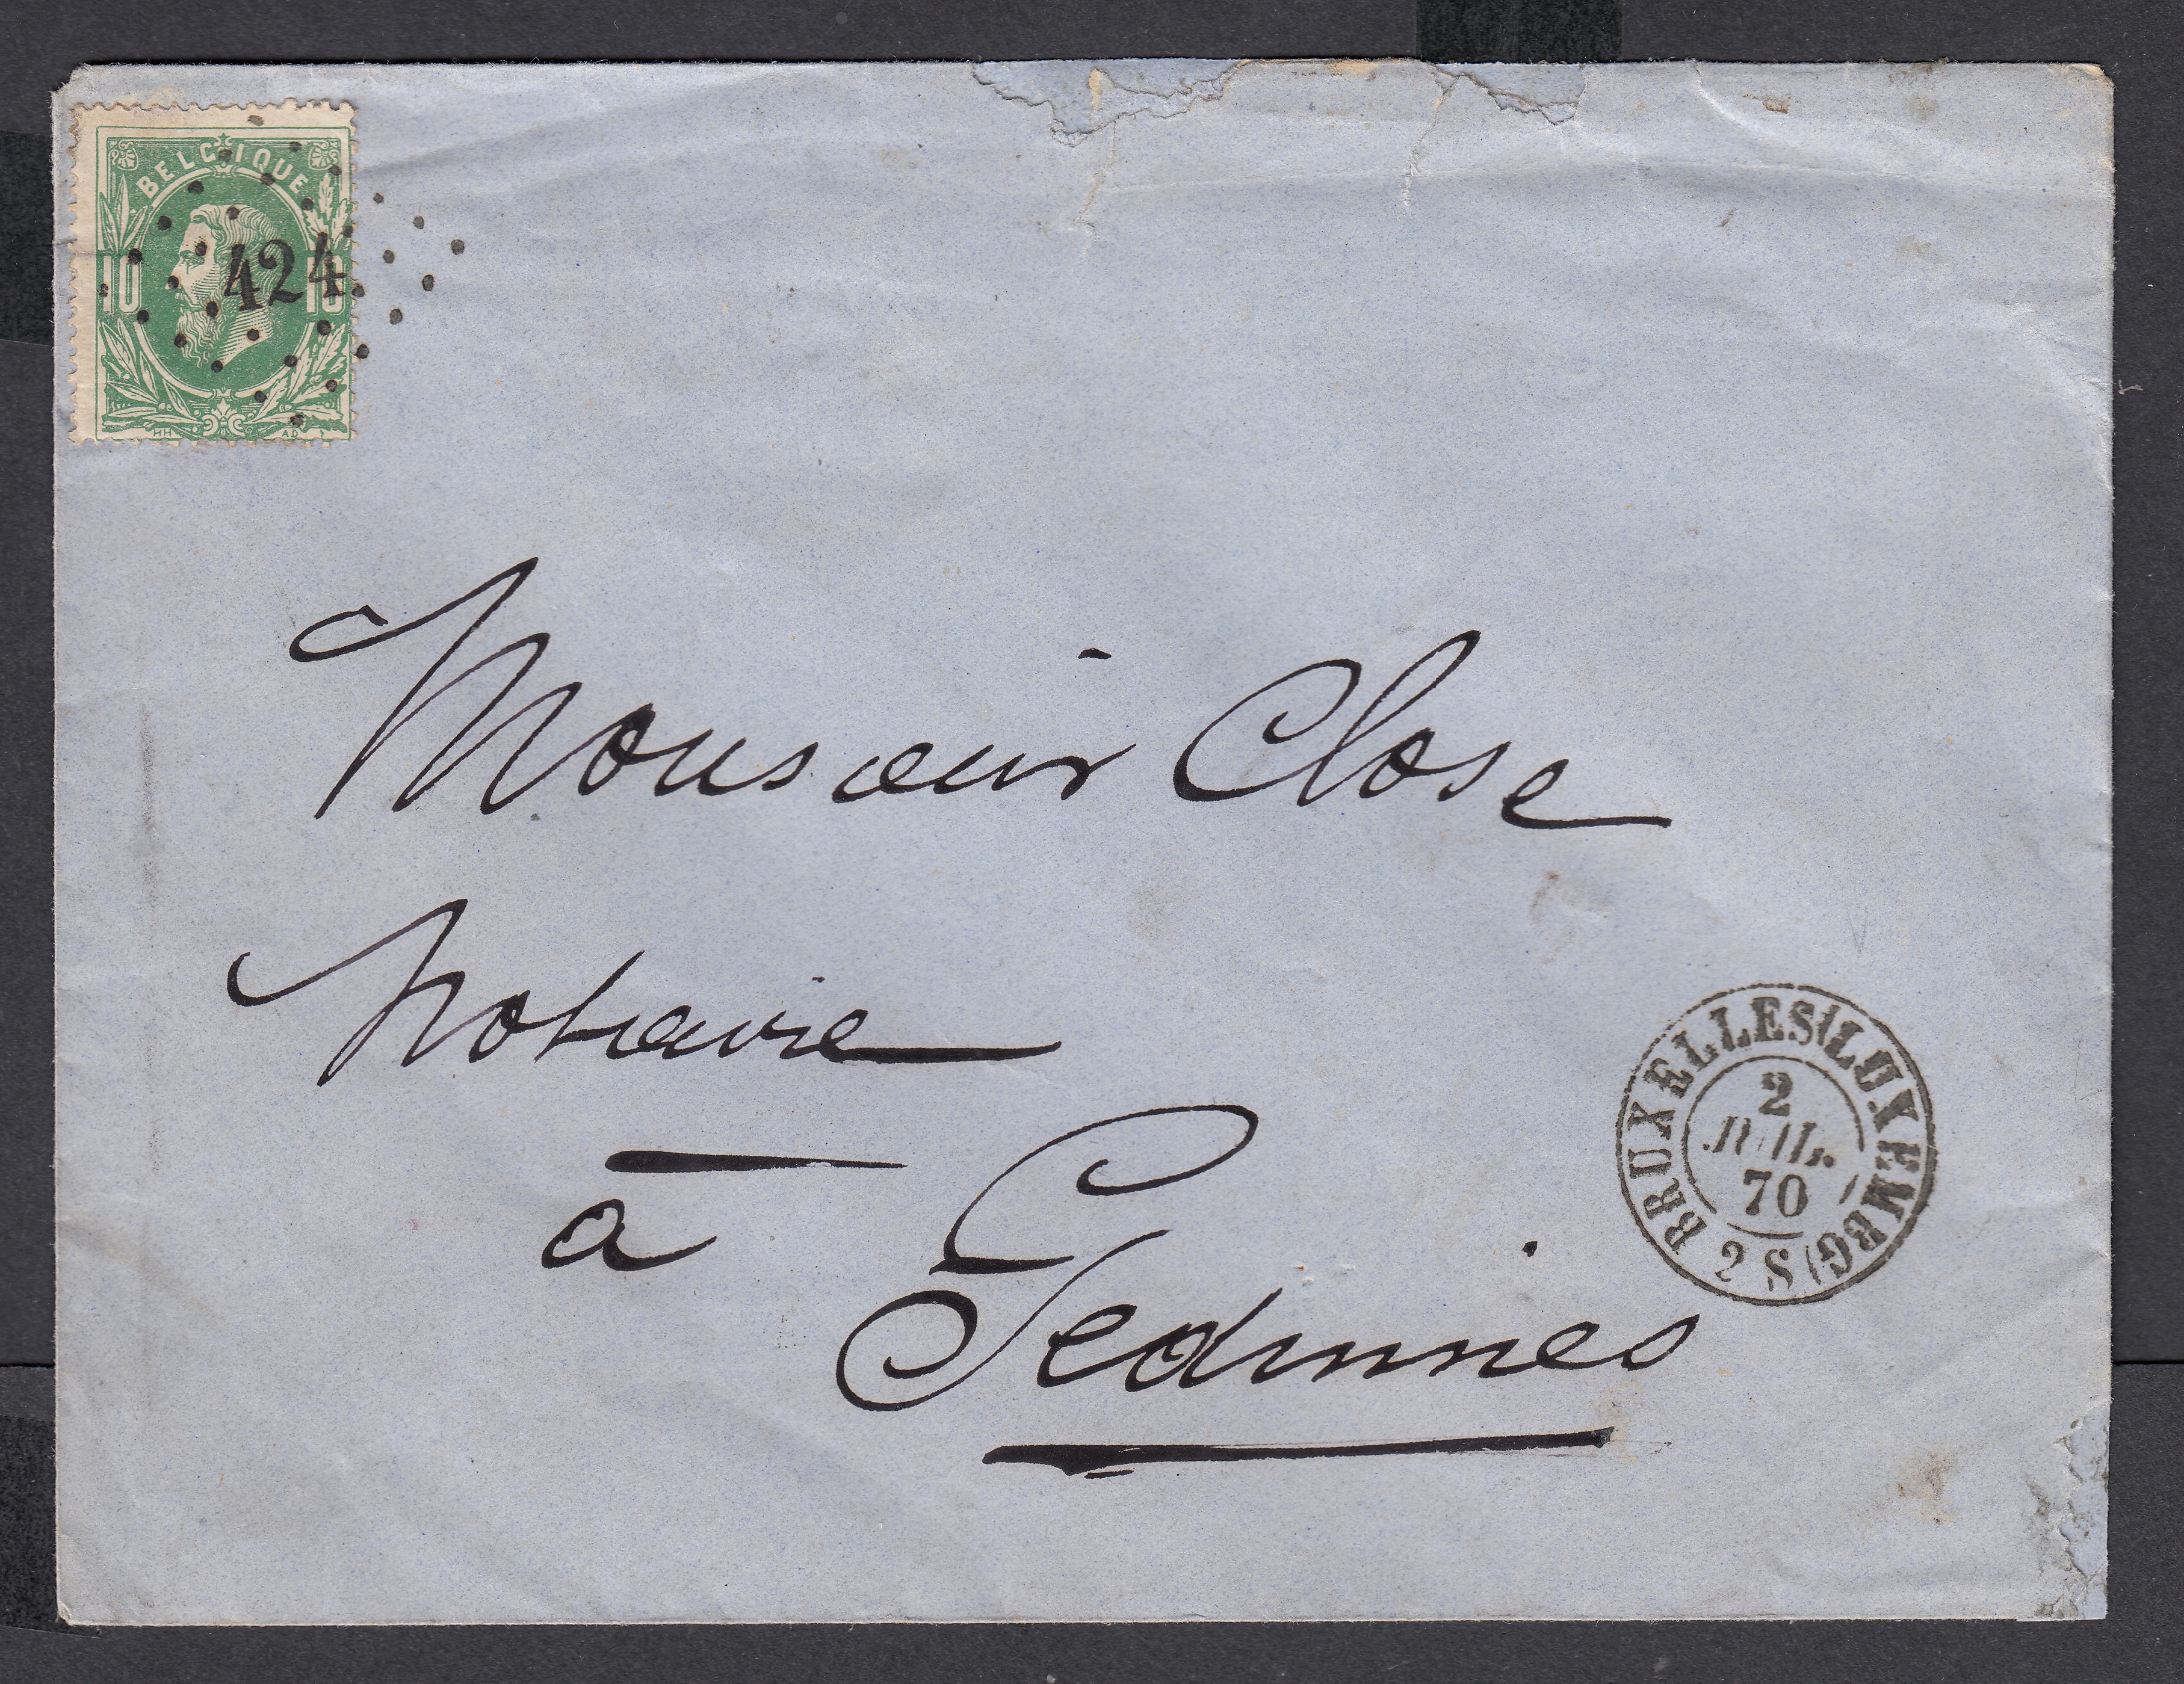 BELGIQUE
10 10
424
HH AD
Monsieur Close
Notaire
à
Gedinnes
BRUXELLES (LUXEMBG)
2
JUIL.
70
2 S